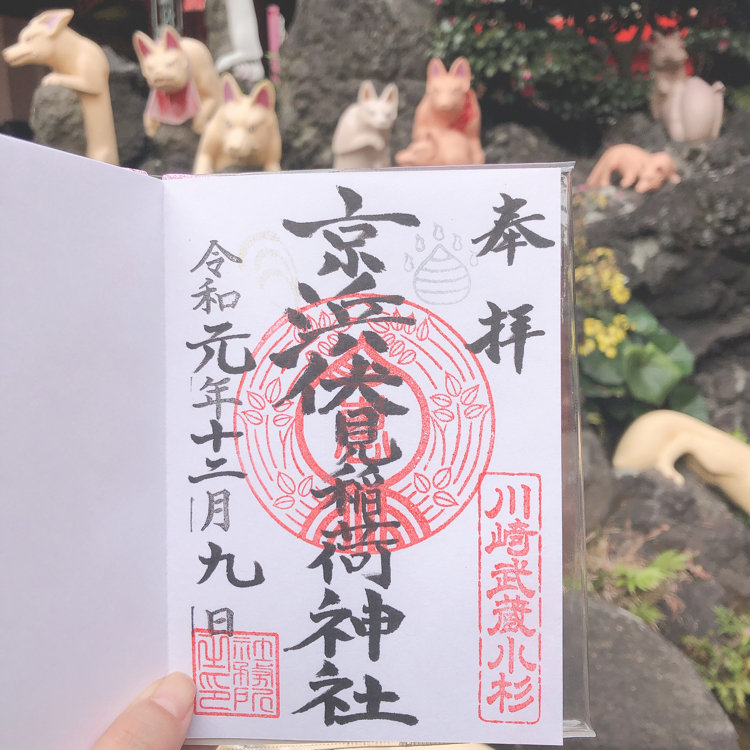 奉拝
川崎武蔵小杉
京浜伏見稲荷神社
令和元年十二月九日